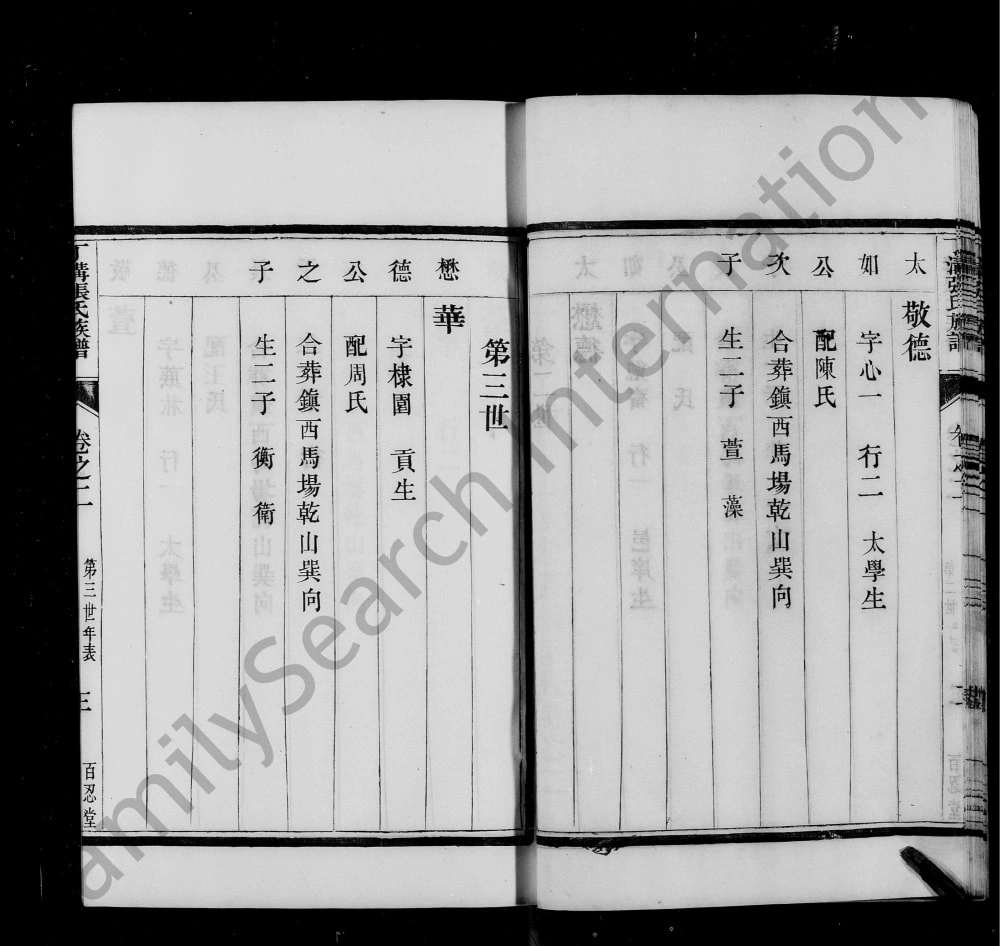 太 敬德
如 字心一 行二 太學生
公 配陳氏
次 合葬鎮西馬場乾山巽向
子 生二子 萱 藻
第三世
懋 華
德 字棣園 貢生
公 配周氏
之 合葬鎮西馬場乾山巽向
子 生二子 衡 衛
溝張氏族譜 卷之二 第三世年表 三 百忍堂
FamilySearch International